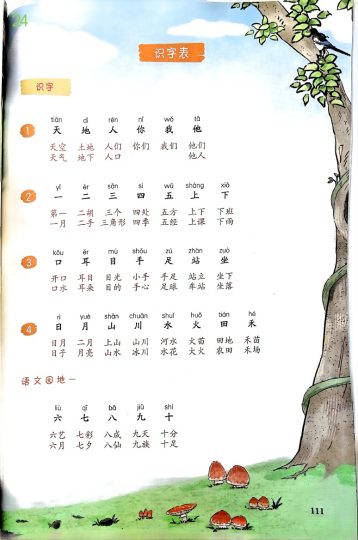 24
识字表
识字
tiān dì rén nǐ wǒ tā
1 天 地 人 你 我 他
天空 土地 人们 你们 我们 他们
天气 地下 人口 他人
yī èr sān sì wǔ shàng xià
2 一 二 三 四 五 上 下
第一 二胡 三个 四处 五方 上下 下班
一月 二手 三角形 四季 五经 上课 下雨
kǒu ěr mù shǒu zú zhàn zuò
3 口 耳 目 手 足 站 坐
开口 耳目 目光 小手 手足 站立 坐下
口水 耳朵 目的 手心 足球 车站 坐落
rì yuè shān chuān shuǐ huǒ tián hé
4 日 月 山 川 水 火 田 禾
日月 二月 上山 山川 河水 火苗 田地 禾苗
日子 月亮 山水 冰川 水花 大火 农田 禾场
语文园地一
liù qī bā jiǔ shí
六 七 八 九 十
六艺 七彩 八成 九天 十分
六月 七夕 八仙 九族 十足
111